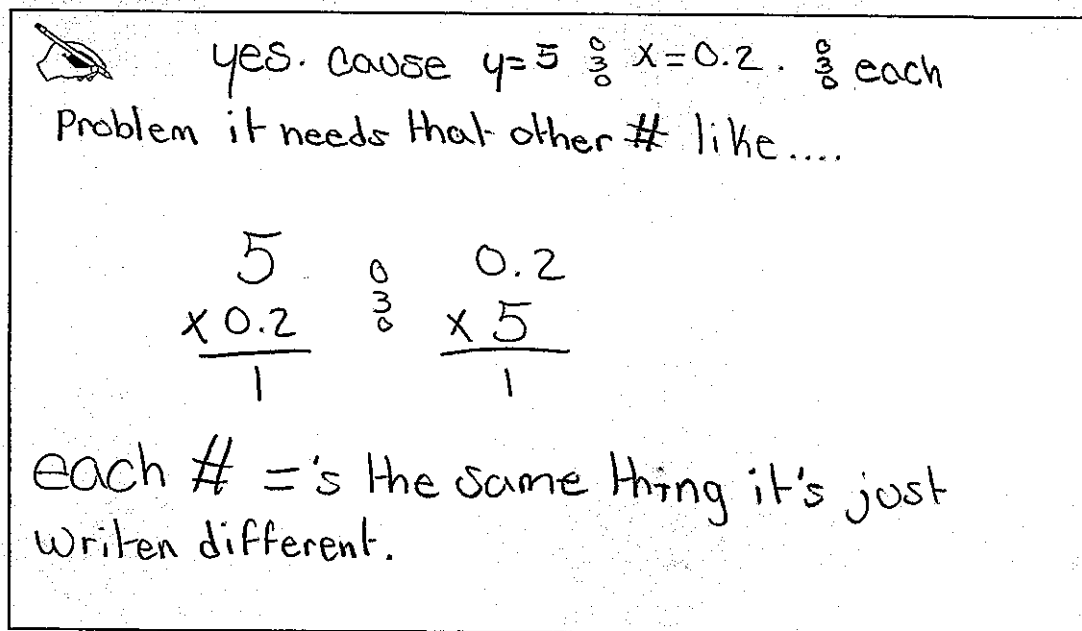 yes. cause y=5 & x=0.2. & each
Problem it needs that other # like....
5 & 0.2
x 0.2 x 5
1 1
each # ='s the same thing it's just
writen different.